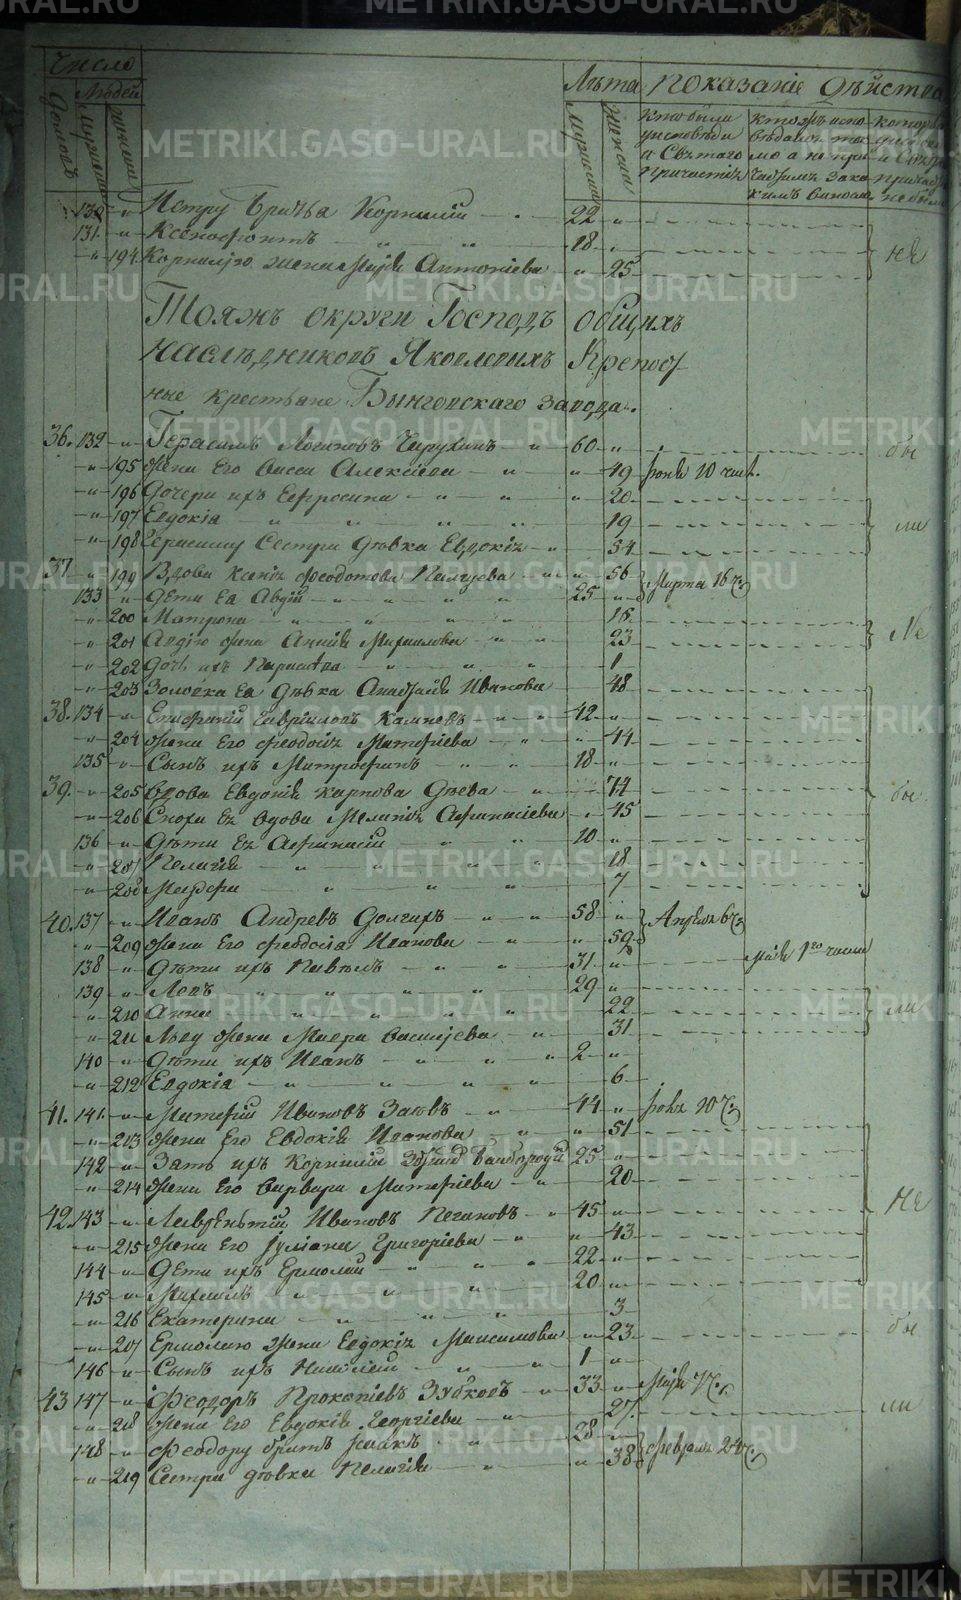 METRIKI.GASO-URAL.RU
Число
Людей
Лѣта
показаніе дѣйства
Домовъ
Мужеска
Женска
Мужеска
Женска
кто были у исповѣди и Святаго причастія
кто жъ исповѣдался токмо а не причастился и за какимъ виноcл.
130 " Петру Братья Корнилій " 22 "
131 " Ксенофонтъ " " 18 "
" 194 Корнилію жена Марія Антоніева " 25
не
Тояжъ округи Господъ общихъ
наслѣдниковъ Яковлевыхъ Крепост
ные крестьяне Быньговскаго завода.
36. 132 " Герасимъ Логиновъ " 60 " бы
" 195 жена Его Васса Алексіева " " 49 Іюня 10 числ.
" 196 Дочери ихъ Евфросина " " " 20
" 197 Евдокія " " " " 19 ли
" 198 Герасиму Сестра дѣвка Евдокія " 54
37 " 199 Вдова Ксенія Феодотова " " 56 Марта 16 ч.
133 " Дѣти Ея Авдій " " " 25 "
" 200 Матрона " " " 18
" 201 Авдію жена Анна Михаилова " " 23 не
" 202 Дочь ихъ Параскева " " " 1
" 203 Золовка Ея дѣвка Ивановa 48
38. 134 " Епифаній Гавріиловъ Камневъ " " 42 "
" 204 жена Его Феодосія Матфіева " " 44
135 " Сынъ ихъ Митрофанъ " " 18 "
39. " 205 Вдова Евдокія Карпова Деева " 74 бы
" 206 Сноха Ея вдова Меланія Афанасіева " 45
136 " Дѣти Ея Афанасій " " 10 "
" 207 Пелагія " " " " 18
" 208 Марфа " " " 7
40. 137 " Иванъ Андреевъ Долгихъ " " 58 " Апреля 6 ч.
" 209 жена Его Феодосія Иванова " " 59
138 " Дѣти ихъ Павелъ " " 31 " Маія 1го числа
139 " Левъ " " " " 29 "
" 210 Анна " " " " 22 ли
" 211 Льву жена Мавра Васильева " 31
140 " Дѣти ихъ Иванъ " " " 2 "
" 212 Евдокія " " " " 6
41. 141. " Матфій Ивановъ Заевъ " 44 " Іюня 20 ч.
" 213 жена Его Евдокія Иванова " " 51
142 " Зять ихъ Корнилій 25 "
" 214 жена Его Варвара Матфіева " 20
42. 143 " Лаврентій Ивановъ Пегановъ " 45 " не
" 215 жена Его Іуліана Григоріева " " 43
144 " Дети ихъ Ермолай " " " 22 "
145 " Михаилъ " " " 20 "
" 216 Екатерина " " " 3
" 217 Ермолаю жена Евдокія Максимова " 23 бы
146 " Сынъ ихъ Николай " " 1 "
43 147 " Феодоръ Прокопіевъ Зубковъ " 33 " Маія 7 ч.
" 218 жена Его Евдокія Георгіева " 27. ли
148 " Феодору братъ Исаакъ " " 28 "
" 219 Сестра дѣвка Пелагія " " 38 Февраля 20 ч.